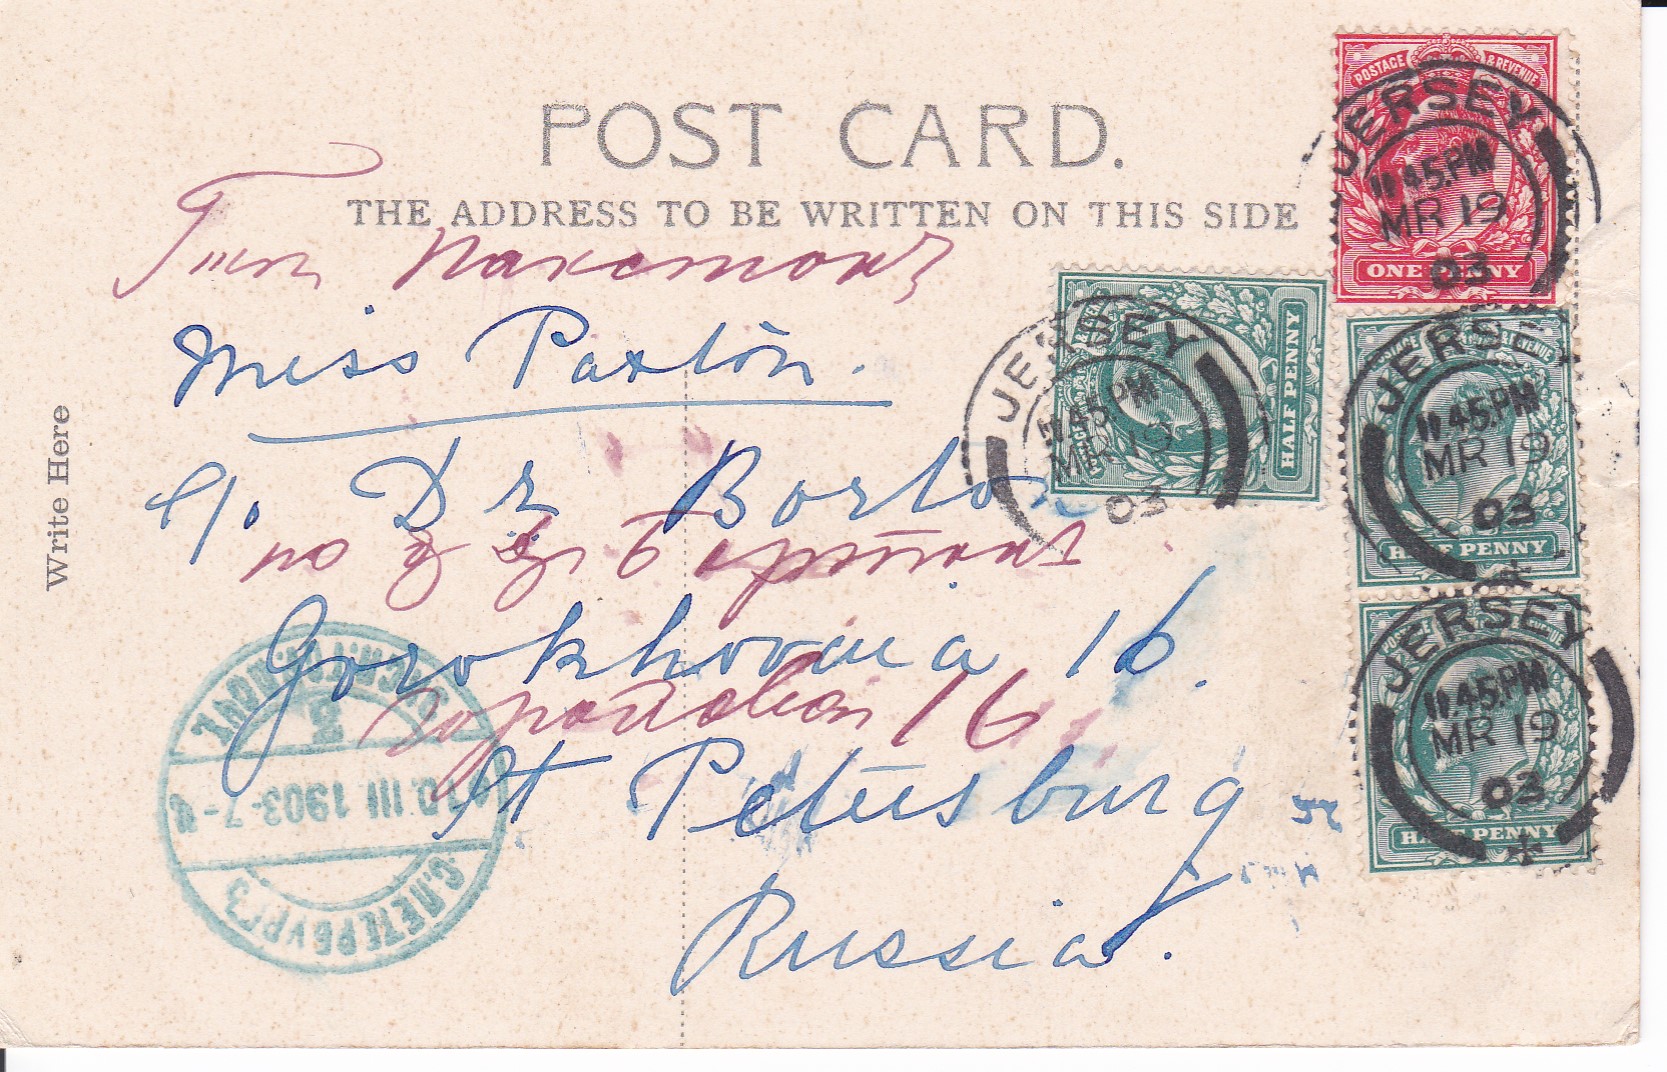 POST CARD.
THE ADDRESS TO BE WRITTEN ON THIS SIDE
Write Here
Miss Paxton.
c/o Dr Borton
Gorokhovaia 16.
16
St Petersburg
Russia.
POSTAGE & REVENUE
ONE PENNY
JERSEY
11 45.PM
MR 19
03
HALF PENNY
JERSEY
11 45.PM
MR 19
03
POSTAGE & REVENUE
HALF PENNY
JERSEY
11 45.PM
MR 19
03
HALF PENNY
JERSEY
11.45.PM
MR 19
03
III 1903-7-
С.ПЕТЕРБУРГЪ